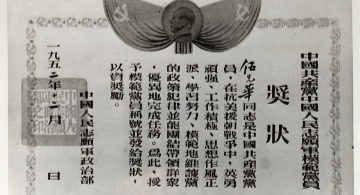 中國共產黨中國人民志願軍模範黨員
獎狀
伍先華同志是中國共產黨黨
員，在抗美援朝戰爭中，英勇
頑强、工作積極、思想作風正
派、學習努力、模範地維護黨
的政策紀律並能團結帶領群衆
，優異地完成任務。爲此，授
予模範黨員稱號並發給獎狀，
以資獎勵。
中國人民志願軍政治部
一九五二年二月 日